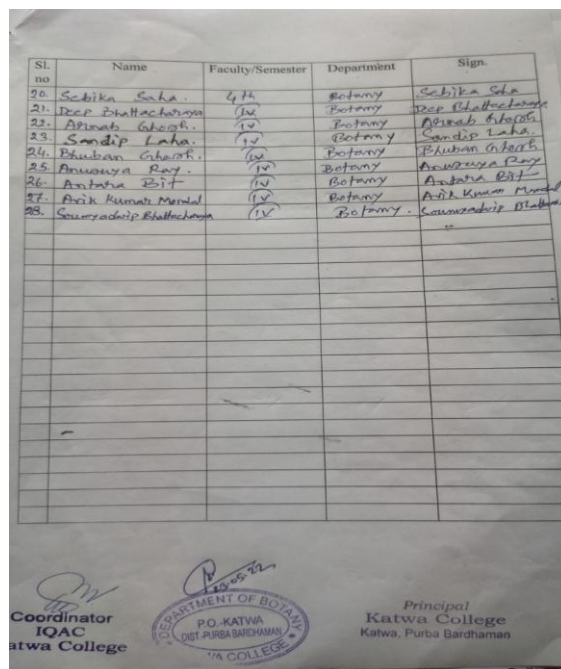 Sl. no Name Faculty/Semester Department Sign.
20. Sebika Saha. 4th Botany Sebika Saha
21. Deep Bhattacharaya IV Botany Deep Bhattacharaya
22. Arnab Ghosh. IV Botany Arnab Ghosh
23. Sandip Laha. IV Botany Sandip Laha.
24. Bhuban Ghosh. IV Botany Bhuban Ghosh
25. Anusuya Ray. IV Botany Anusuya Ray
26. Antara Bit IV Botany Antara Bit
27. Arik Kumar Mondal IV Botany Arik Kumar Mondal
28. Soumyadwip Bhattacharya IV Botany. Soumyadwip
23.05.22
Coordinator
IQAC
atwa College
DEPARTMENT OF BOTANY
P.O.-KATWA
DIST-PURBA BARDHAMAN
WA COLLEGE
Principal
Katwa College
Katwa, Purba Bardhaman